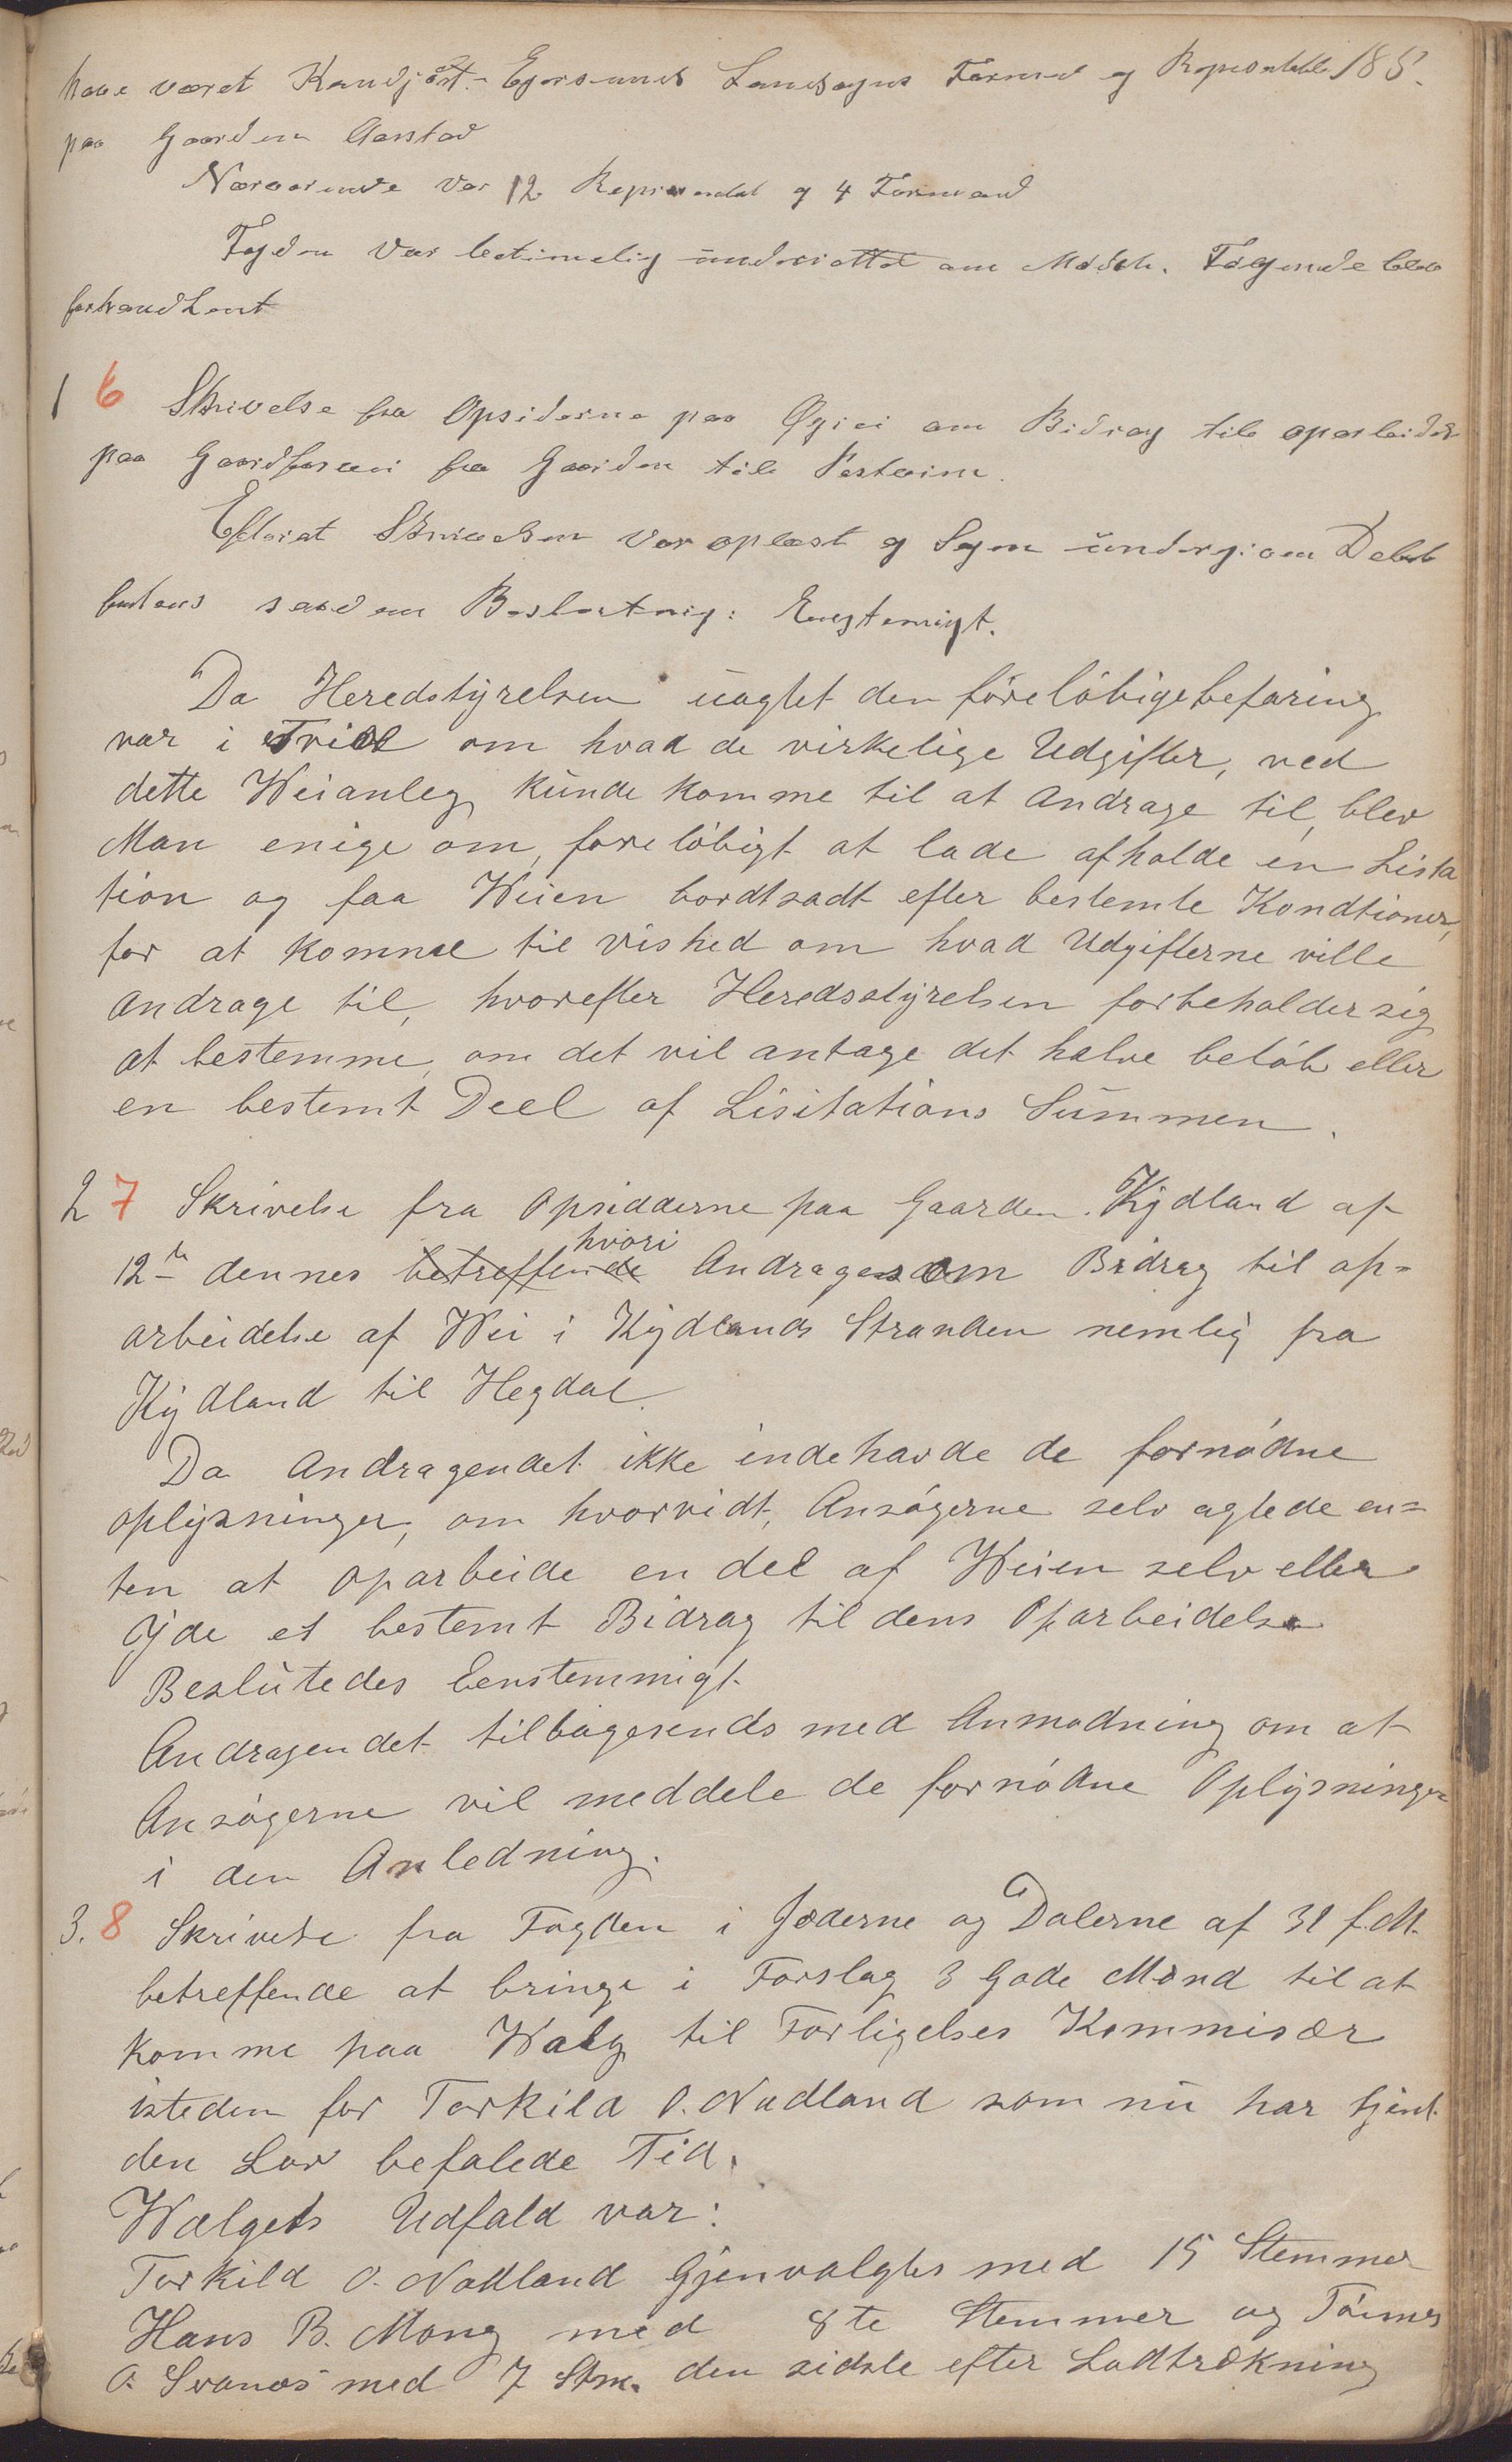 have været Egersunds Landsogns Formæ og 185.
paa Gaarden Aarstad
Nærværende var 12 Repræsendat og 4 Formænd
Fogden var betimelig underrettet om Mødet. Følgende blev
forhandlent
1 6 Skrivelse fra Opsiderne paa Øgrei om Bidrag til oparbeidelse
paa Gaardsveien fra Gaarden til
Efterat Skrivelsen var oplæst og Sagen undergivem Debat
saadan Beslutning: Enstemigt.
Da Heredstyrelsen uagtet den föreløbige befaring
var i Tviel om hvad de virkelige Udgifter, ved
dette Weianleg kunde komme til at andrage til, blev
Man enige om, foreløbigt at lade afholde en Lisita
tion og faa Weien bordtsadt efter bestemte Kondtioner,
for at komme til vished om hvad Udgifterne ville
andrage til, hvorefter Heredsstyrelsen forbeholder sig
at bestemme, om det vil antage det halve beløb eller
en bestemt Deel af Lisitations Summen.
2 7 Skrivelse fra Opsidderne paa Gaarden Kydland af
12te dennes betreffende hvori Andrages om Bidrag til op=
arbeidelse af Wei i Kydlands Stranden nemlig fra
Kydland til Hegdal
Da Andragendet ikke indehavde de fornødne
oplysninger, om hvorvidt, Ansøgerne selv agtede en=
ten at oparbeide en del af Weien selv eller
Yde et bestemt Bidrag til dens Oparbeidelse
Beslutedes Eenstemmigt
Andragendet tilbagesends med Anmodning om at
Ansøgerne vil meddele de fornødne Oplysninger
i den Anledning.
3. 8 Skrivelse fra Fogden i Jæderne og Dalerne af 31 f. M.
betreffende at bringe i Forslag 3 Gode Mænd til at
komme paa Walg til Forligelses Kommisær
isteden for Torkild O. Nadland som nu har tjent
den Lov befalede Tid.
Walgets Udfald var:
Torkild O. Nadland Gjenvalgtes med 15 Stemmer
Hans B. Mong med 8te Stemmer og Tønnes
O. Svanæs med 7 Stm. den sidste efter Lodtrækning